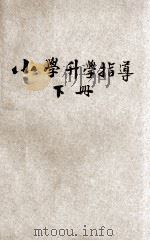 小學升學指導
下冊